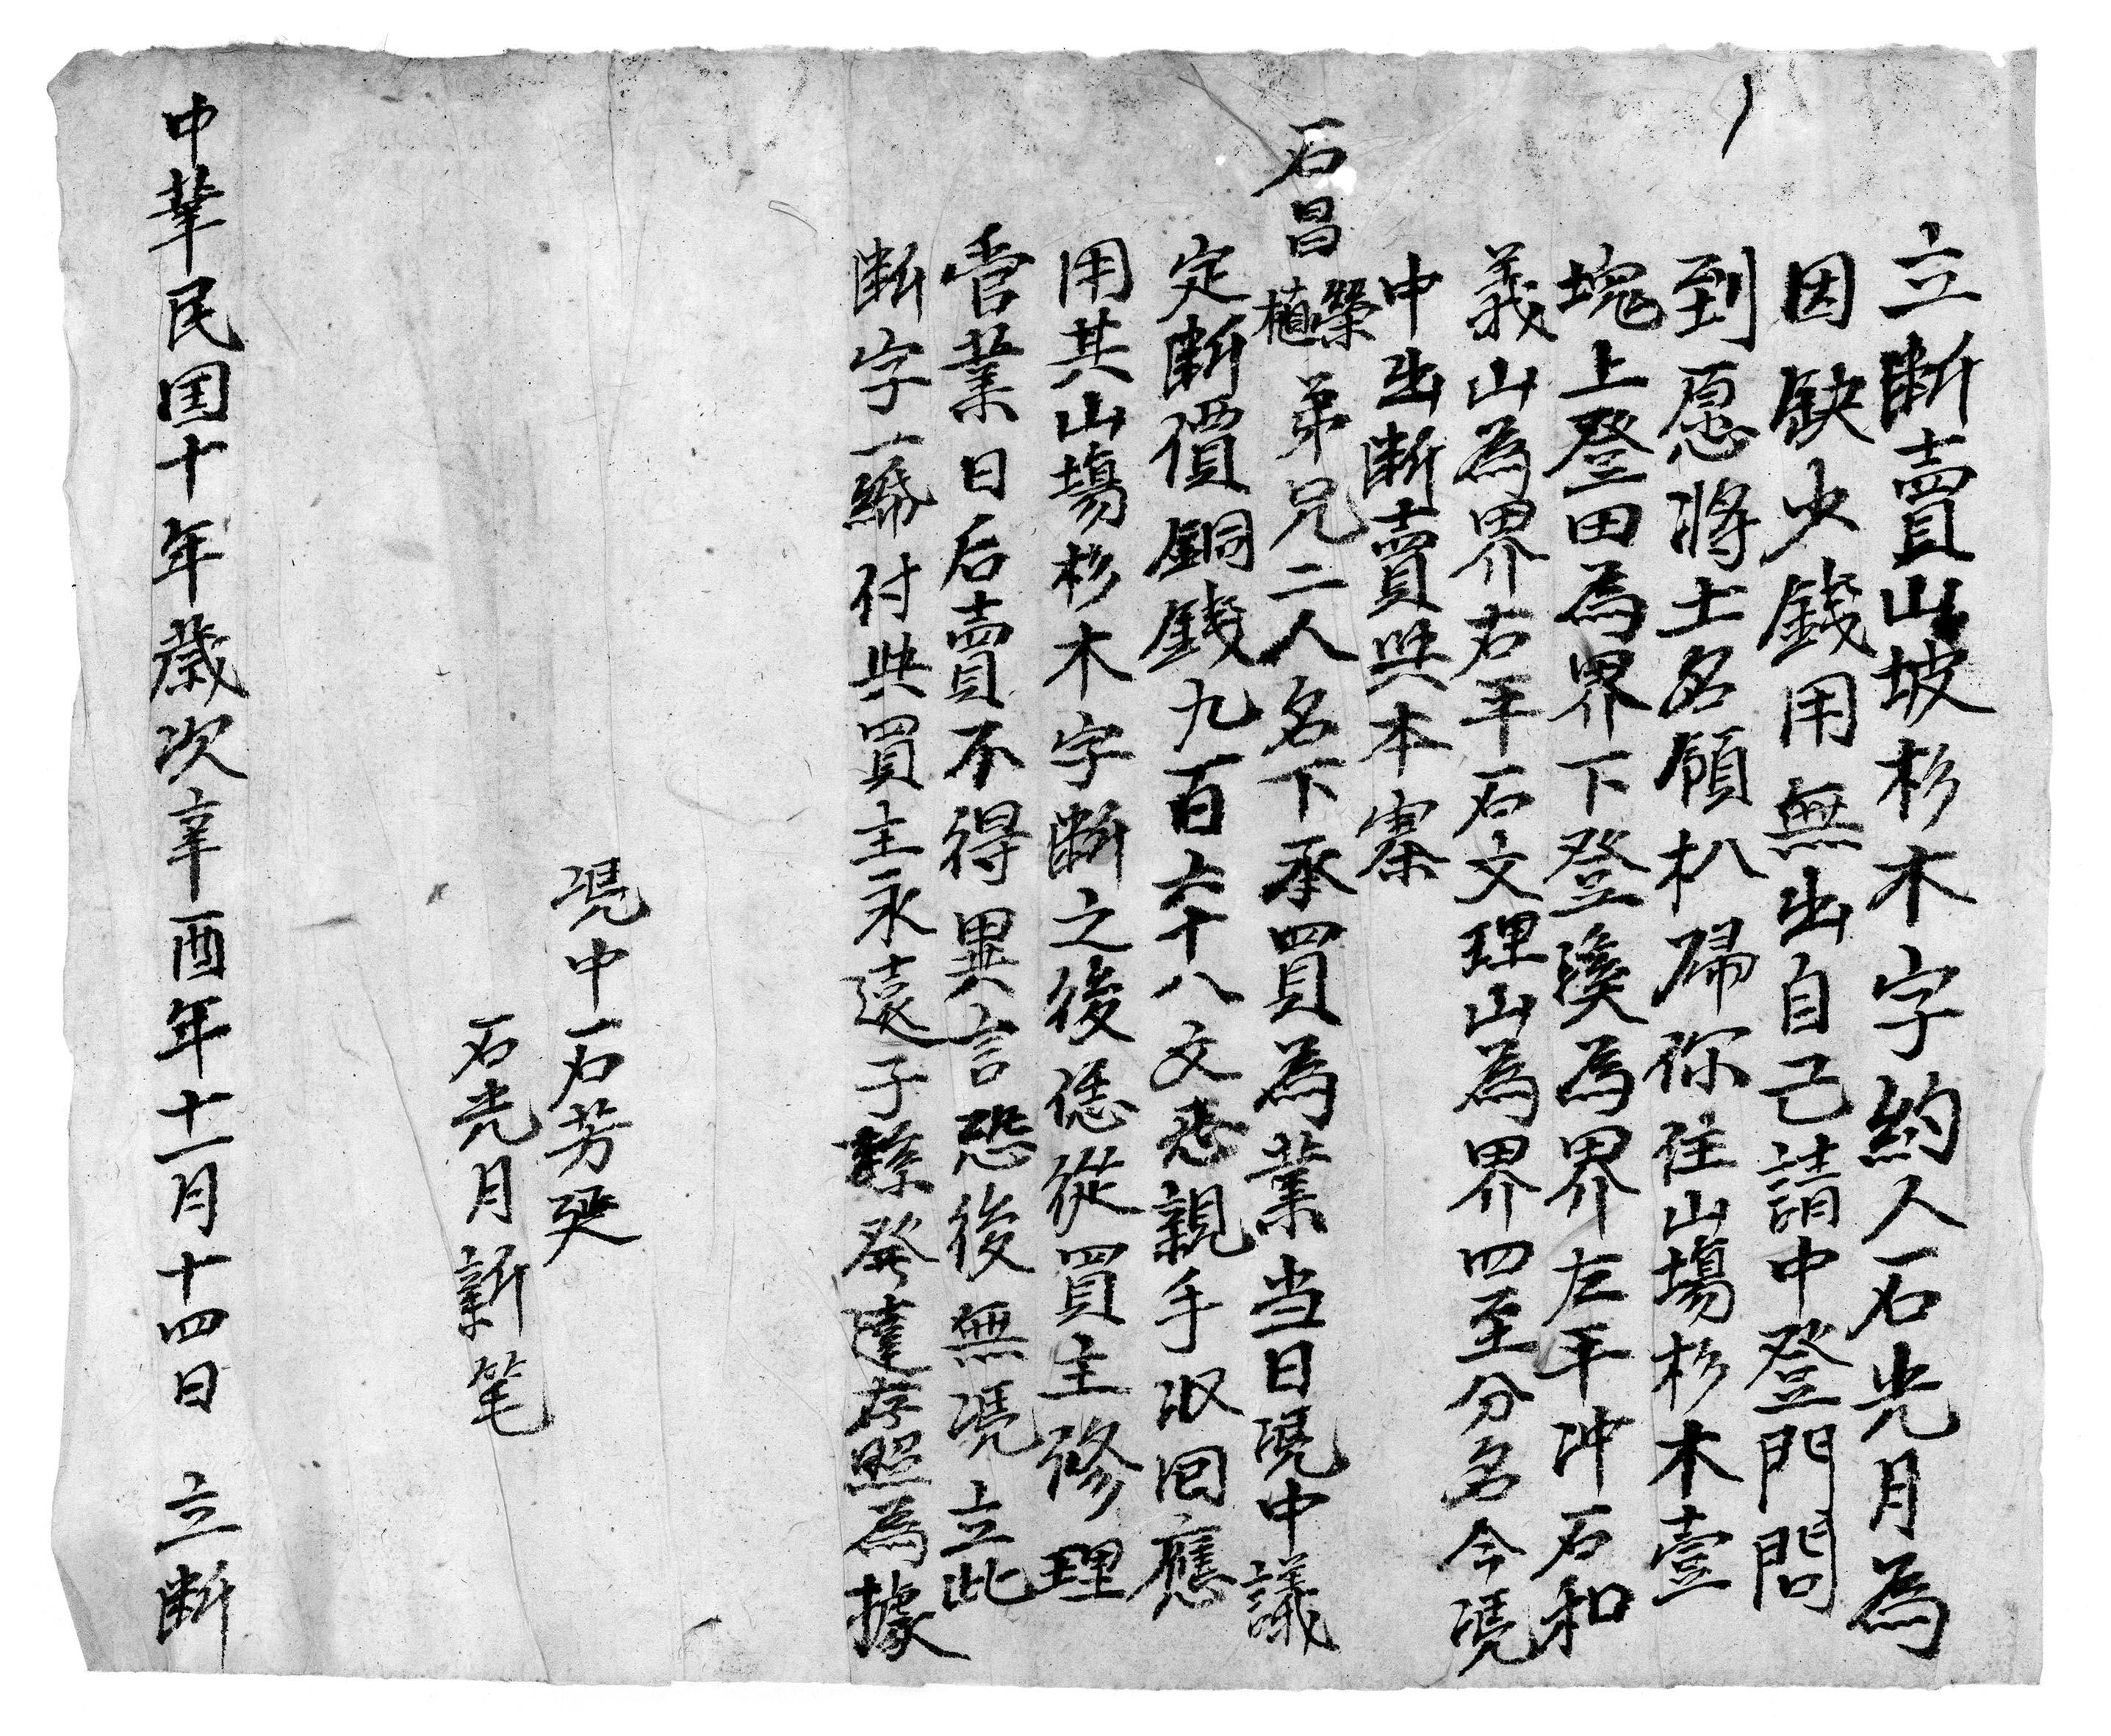 立断賣山坡杉木字約人石光月為
因缺少錢用無出自己請中登門問
到愿將土名領朳歸你往山塲杉木壹
塊上登田為界下登溪為界左平冲石和
義山為界右平石文理山為界四至分名今凴
中出断賣與本寨
石昌榮植弟兄二人名下承買為業当日凴中議
定断價銅錢九百六十八文悉親手収回應
用其山塲杉木字断之後慿從買主修理
管業日后賣不得異言恐後無凴立此
断字一紙付與買主永遠子孫發達存照為據
凴中石芳
石光月新笔
中華民国十年歲次辛酉年十一月十四日 立断